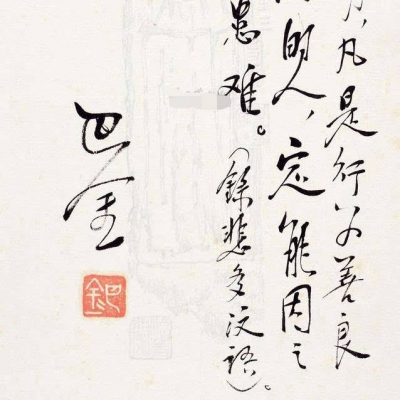 ,凡是行为善良
的人,定能因之
患难。(錄悲多汶语)。
巴金
巴金